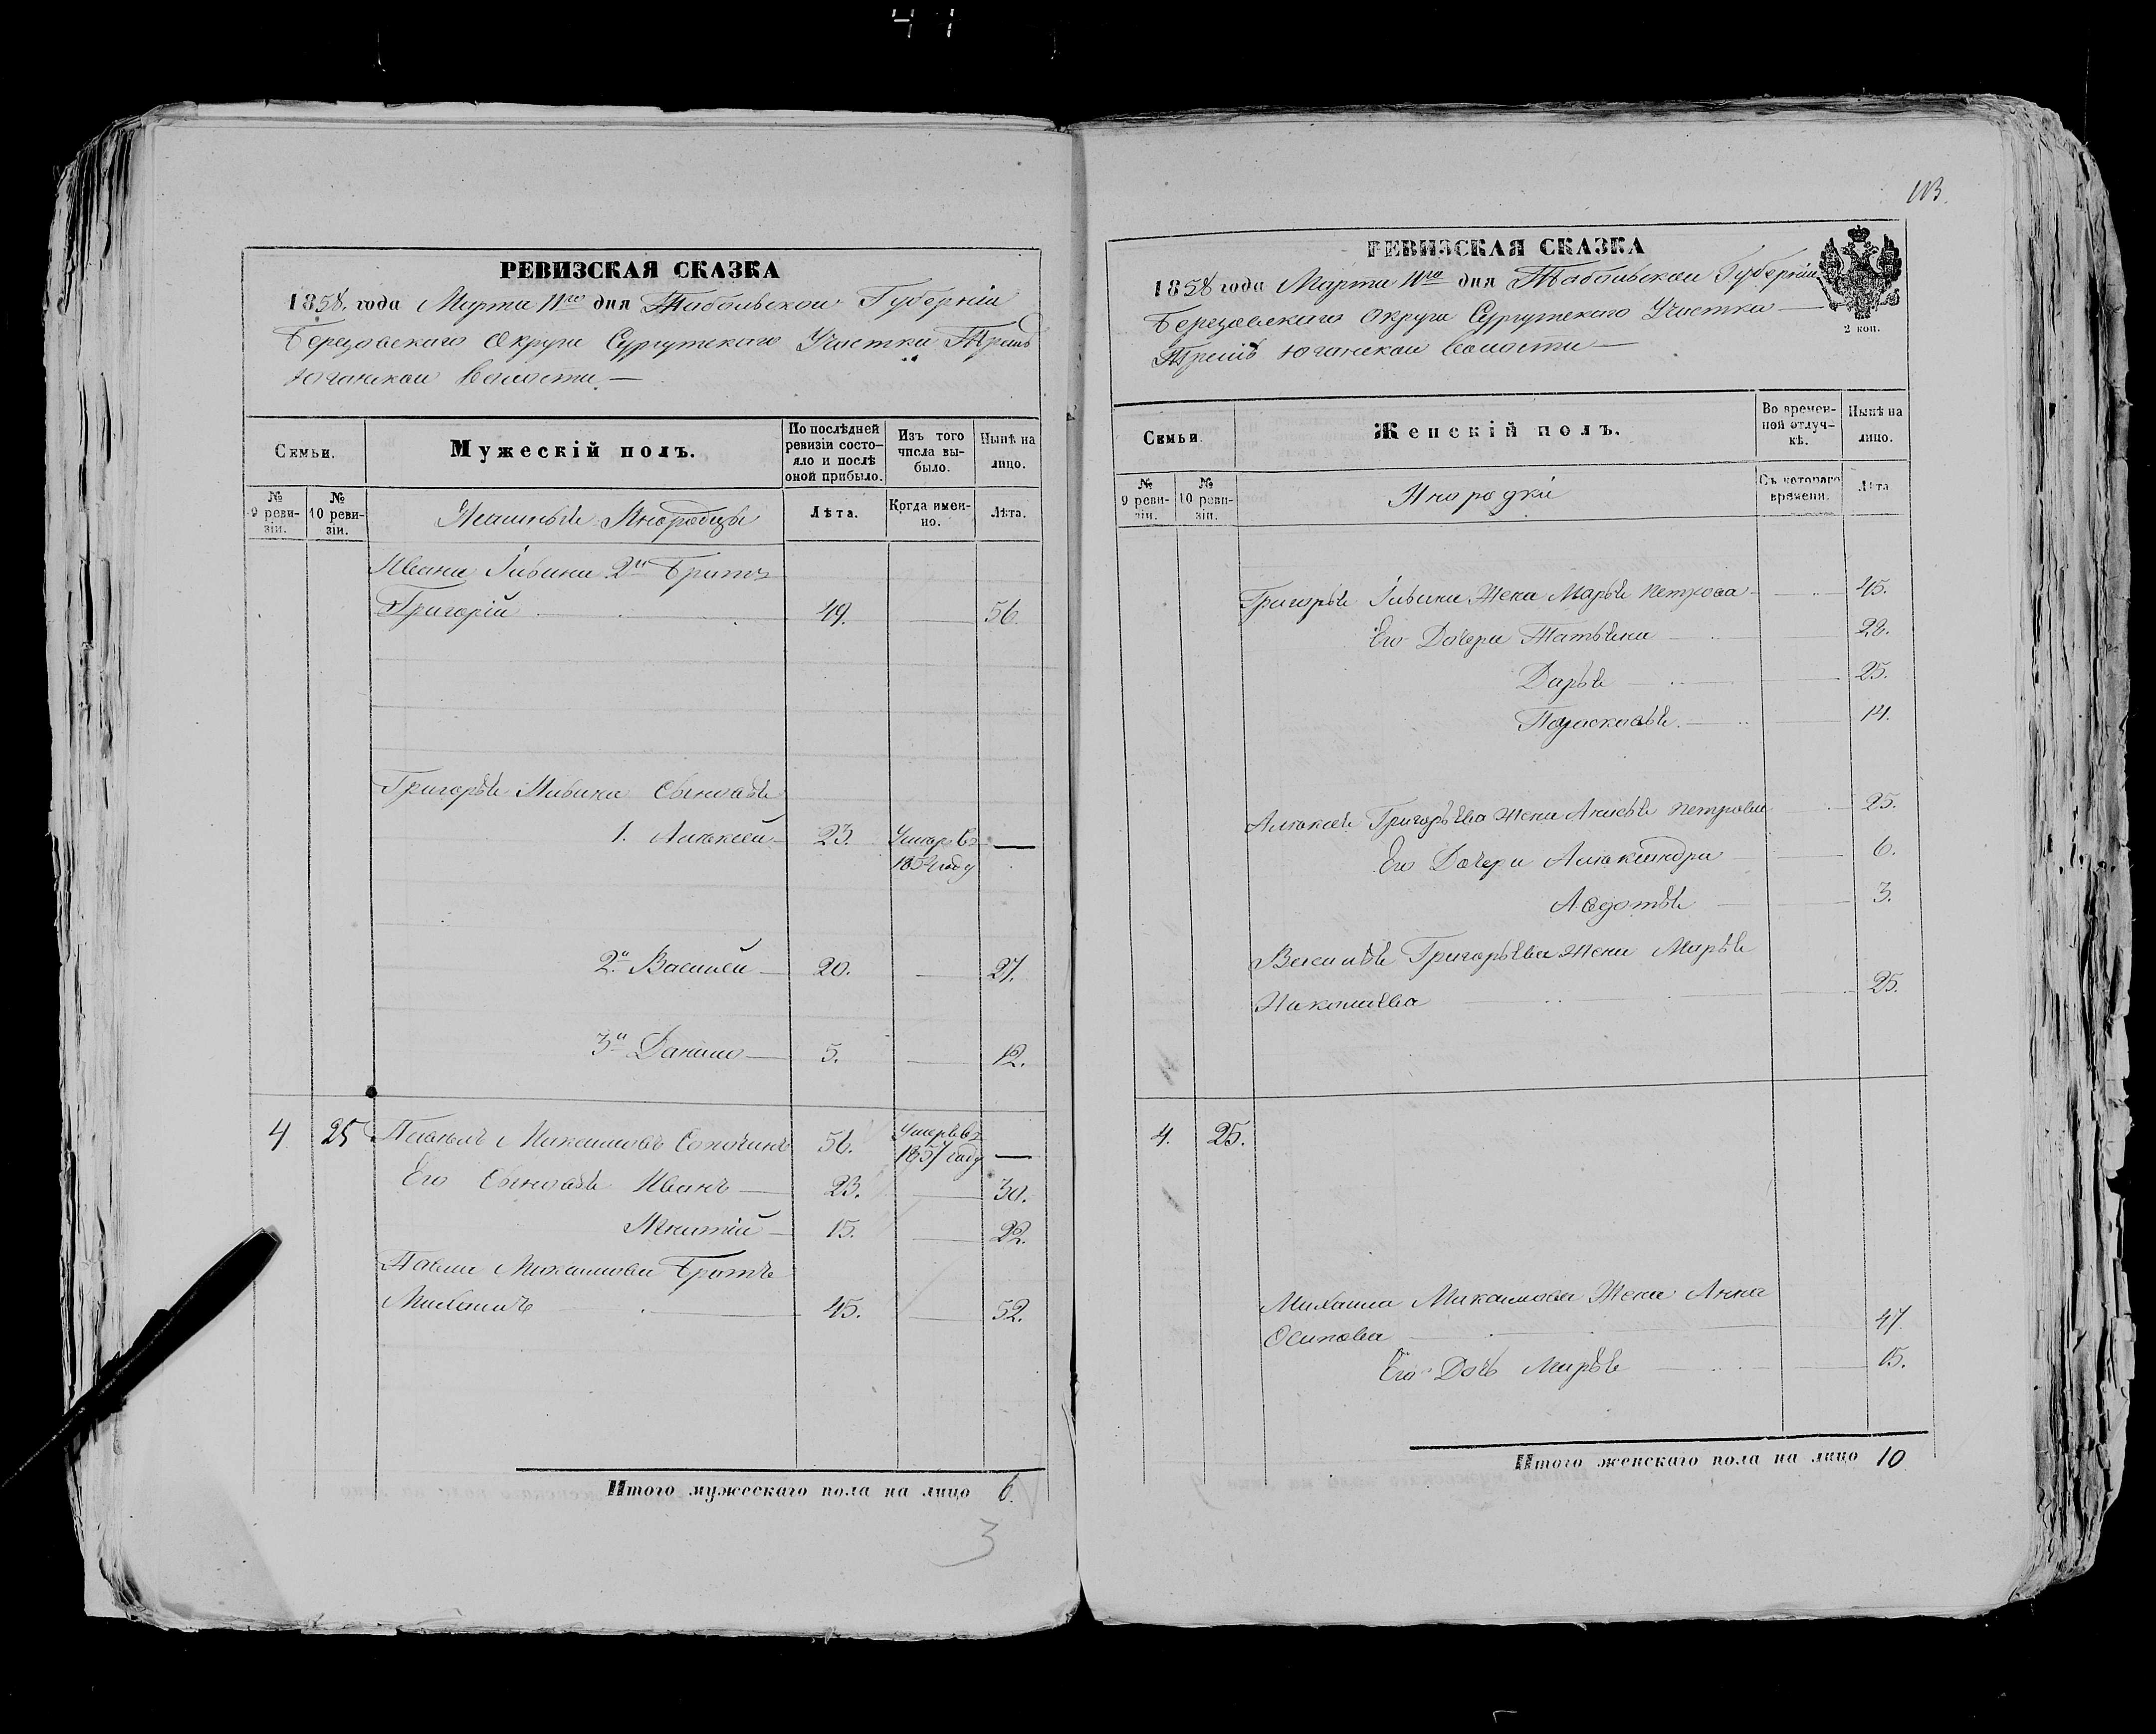 41
РЕВИЗСКАЯ СКАЗКА
1858. года Марта 11го дня Табольской Губерніи
Березовскаго Округа Сургутскаго Участка Тремъ
Юганской Волости
Семьи.
Мужескій полъ.
По послѣдней ревизіи состо-
яло и послѣ оной прибыло.
Изъ того числа вы-
было.
Нынѣ на лицо.
№ 9 реви-
зіи.
№ 10 реви-
зіи.
Инородцы
Лѣта.
Когда имен-
но.
Лѣта.
Ивана 2й Братъ
Григорій 49. 56.
Григорья Сыновья
1. Алексей 23. Умеръ въ
185 году
2й Василей 20. 27.
3й Данило 5. 12.
4 25 Максимовъ 56. Умеръ въ
1857 году
Его Сыновья Иванъ 23. 30.
15. 22.
Павла Максимова Братъ
Михаилъ 45. 52.
Итого мужескаго пола на лицо 6.
3
113.
РЕВИЗСКАЯ СКАЗКА
1858 года Марта 11го дня Табольской Губерніи
Березовскаго Округа Сургутскаго Участка
Тремъ Юганской Волости
2 коп.
Семьи.
Женскій полъ.
Во времен-
ной отлуч-
кѣ.
Нынѣ на лицо.
№ 9 реви-
зіи.
№ 10 реви-
зіи.
Инородки
Съ котораго времени.
Лѣта
Григорья Жена Марья Петрова 45.
Его Дочери Татьяна 28.
Дарья 25.
Парасковья 14.
Алексея Григорьева Жена Петрова 25.
Его Дочери Александра 6.
Авдотья 3.
Василья Григорьева Жена Марья
Николаева 25.
4. 25.
Михаила Максимова Жена Анна
Осипова 47.
Его Дочь Марья 15.
Итого женскаго пола на лицо 10